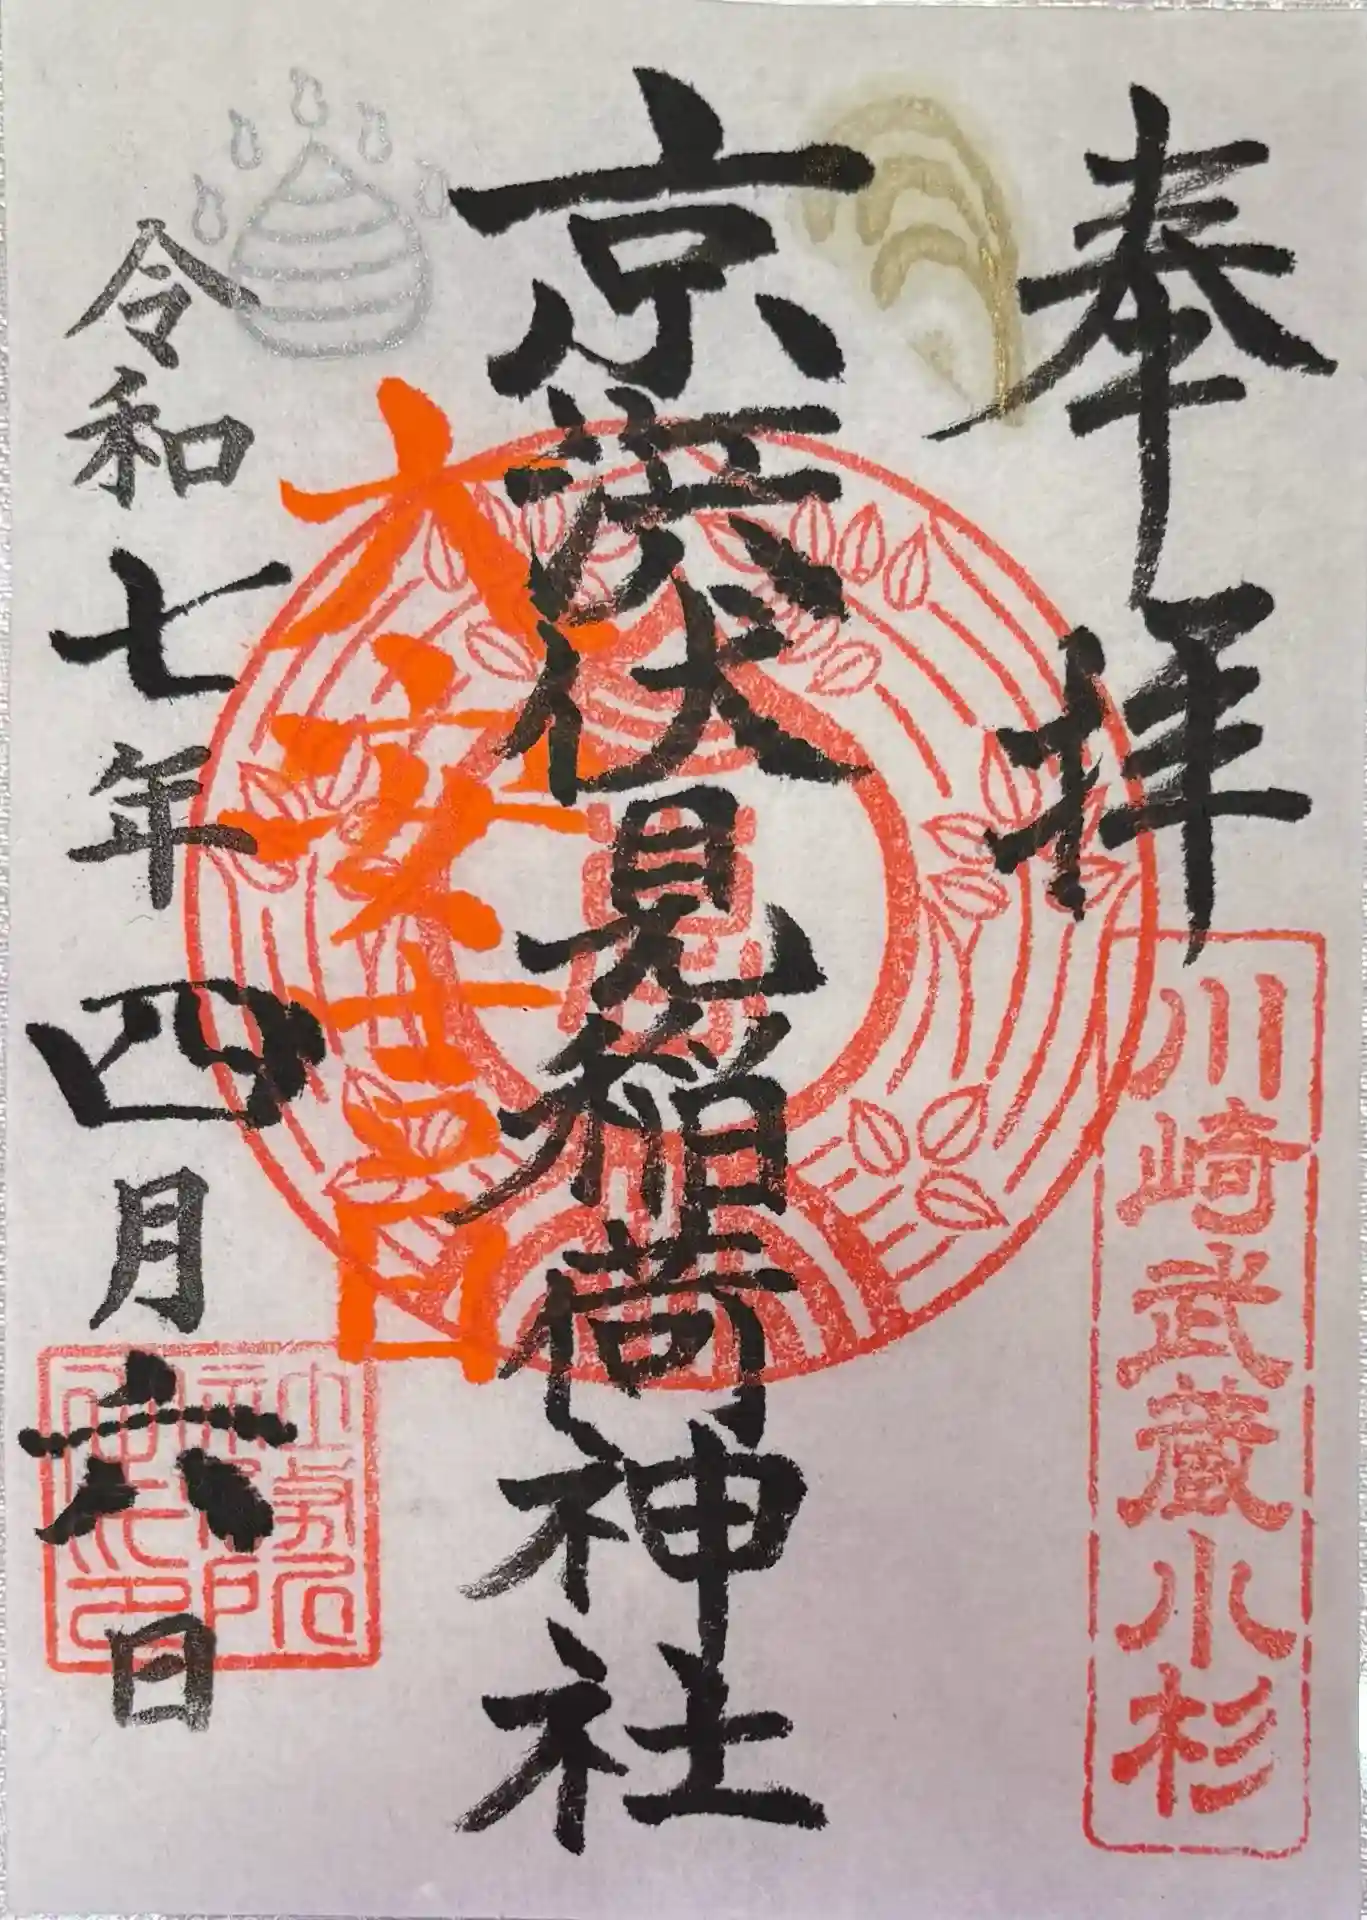 奉拝
川崎武蔵小杉
京濱伏見稲荷神社
大安吉日
令和七年四月六日